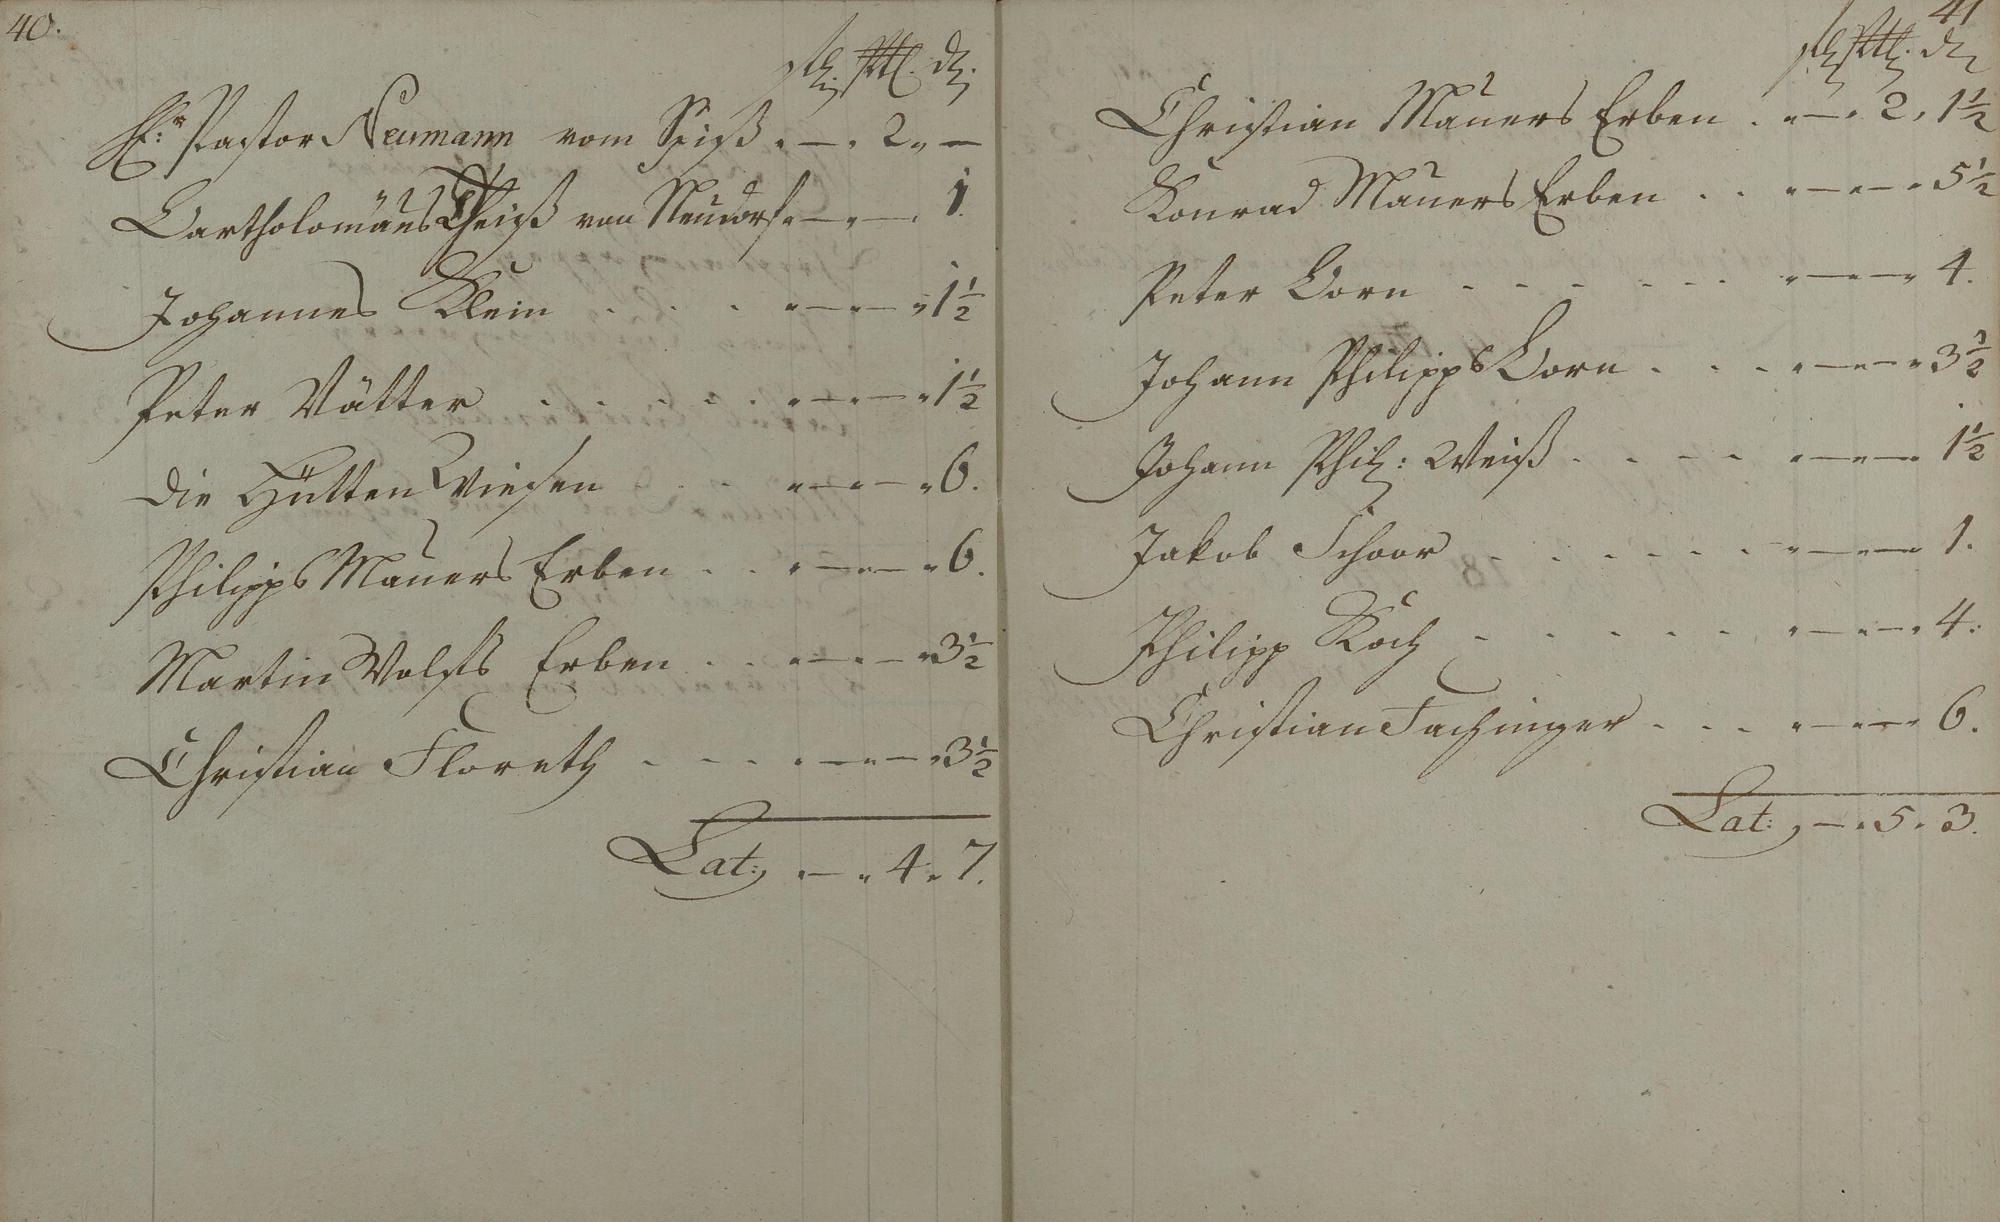 40.
H:r Pastor Neumann vom Spieß . — . 2 „ —
Bartholomäus Theiß von Neudorf „ — „ — . 1.
Johannes Klein . . . „ — „ — „ 1½
Peter Vätter . . . . . „ — „ — „ 1½
die Hütten Wiesen . . . „ — „ — „ 6.
Philipps Mauers Erben . . „ — „ — „ 6.
Martin Wolffs Erben . . „ — „ — „ 3½
Christian Floreth . . . „ — „ — „ 3½
Lat: „ — „ 4 „ 7.
41
Christian Mauers Erben . „ — . 2 . 1½
Konrad Mauers Erben . . „ — „ — „ 5½
Peter Dorn . . . . . . „ — „ — „ 4.
Johann Philipps Dorn . . . „ — „ — „ 3½
Johann Phil: Weiß . . . . „ — „ — „ 1½
Jakob Schoor . . . . . . „ — „ — „ 1.
Philipp Koch . . . . . „ — „ — „ 4.
Christian Fachinger . . . „ — „ — „ 6.
Lat: „ — . 5 . 3.